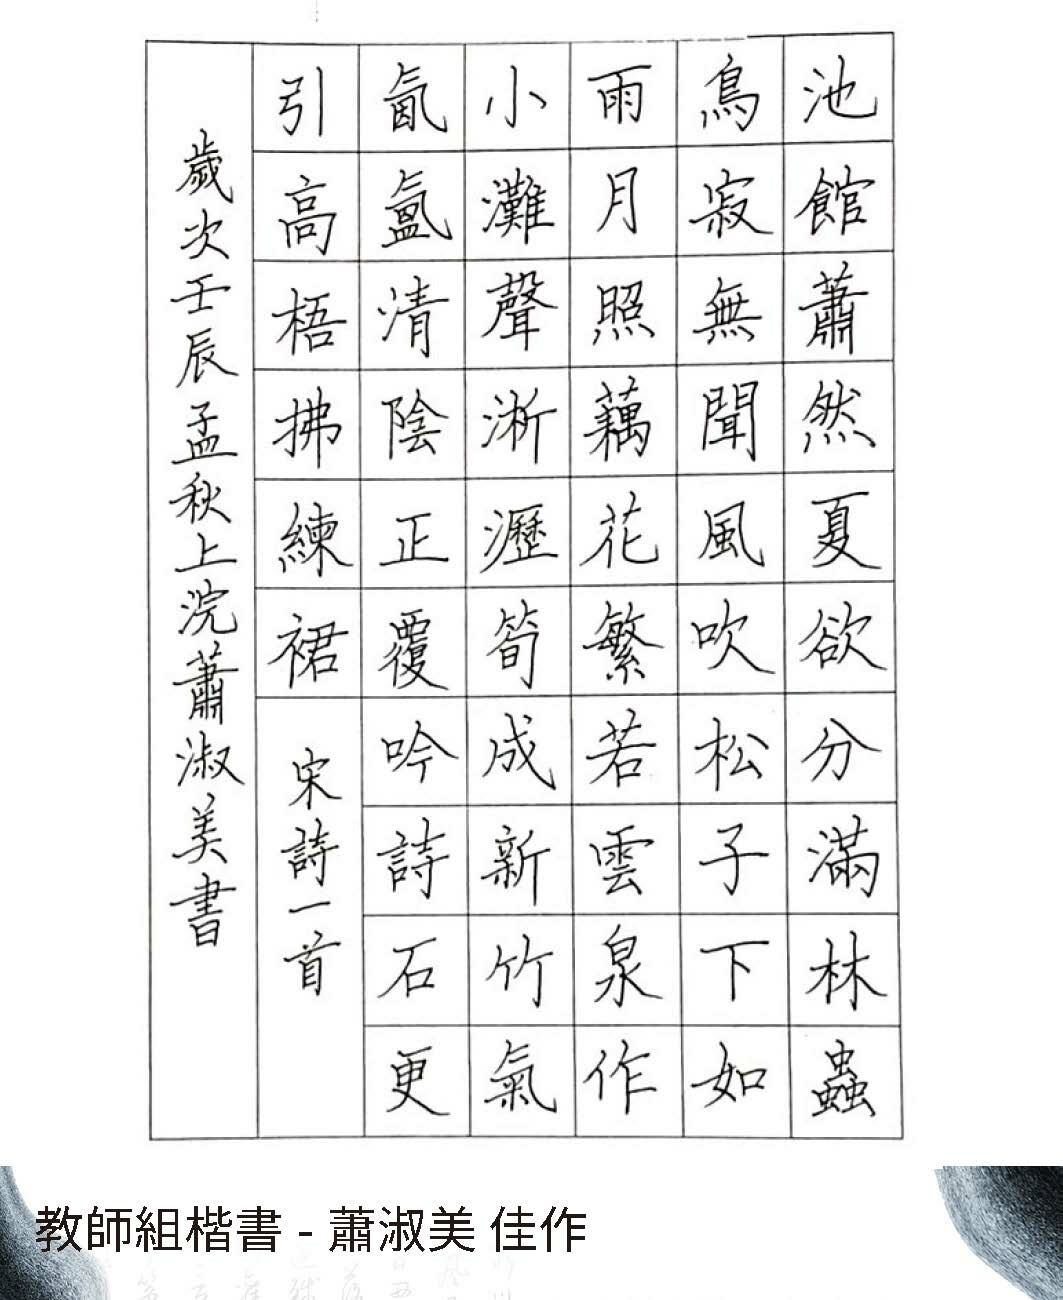 池館蕭然夏欲分滿林蟲
鳥寂無聞風吹松子下如
雨月照藕花繁若雲泉作
小灘聲淅瀝筍成新竹氣
氤氳清陰正覆吟詩石更
引高梧拂練裙
宋詩一首
歲次壬辰孟秋上浣蕭淑美書
教師組楷書 - 蕭淑美 佳作